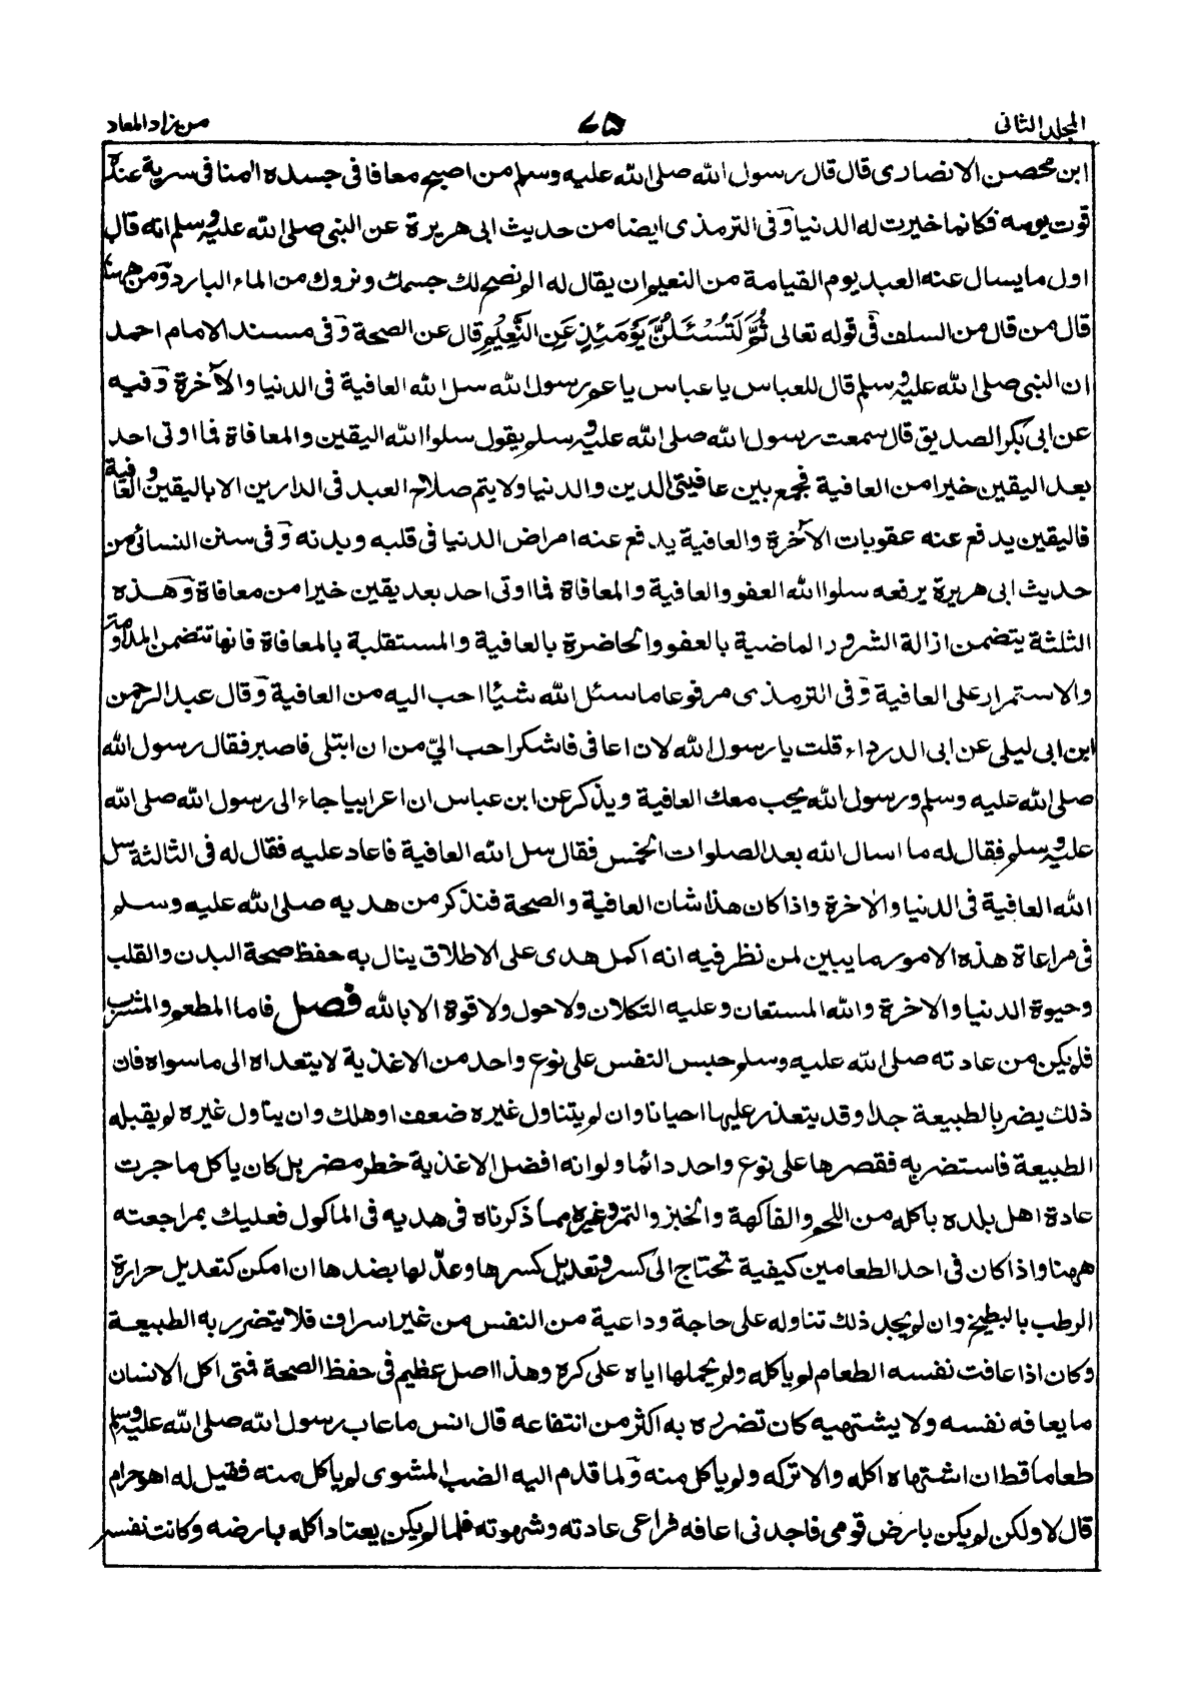 المجلد الثانى ٧٥ من زاد المعاد
ابن محصن الانصارى قال قال رسول الله صلى الله عليه وسلم من اصبح معافا فى جسده امنا فى سربة عنده
قوت يومه فكانما خيرت له الدنيا وفى الترمذى ايضا من حديث ابى هريرة عن النبى صلى الله عليه وسلم انه قال
اول ما يسال عنه العبد يوم القيامة من النعيم ان يقال له الم نصح لك جسمك ونروك من الماء البارد ومن ههنا
قال من قال من السلف فى قوله تعالى ثُمَّ لَتُسْئَلُنَّ يَوْمَئِذٍ عَنِ النَّعِيْمِ قال عن الصحة وفى مسند الامام احمد
ان النبى صلى الله عليه وسلم قال للعباس يا عباس يا عم رسول الله سل الله العافية فى الدنيا والآخرة وفيه
عن ابى بكر الصديق قال سمعت رسول الله صلى الله عليه وسلم يقول سلوا الله اليقين والمعافاة فما اوتى احد
بعد اليقين خيرا من العافية فجمع بين عافيتى الدين والدنيا ولا يتم صلاح العبد فى الدارين الا باليقين والعافية
فاليقين يدفع عنه عقوبات الآخرة والعافية يدفع عنه امراض الدنيا فى قلبه وبدنه وفى سنن النسائى من
حديث ابى هريرة يرفعه سلوا الله العفو والعافية والمعافاة فما اوتى احد بعد يقين خيرا من معافاة وهذه
الثلثة يتضمن ازالة الشرور الماضية بالعفو والحاضرة بالعافية والمستقلبة بالمعافاة فانها تتضمن المداومة
والاستمرار على العافية وفى الترمذى مرفوعا ما سئل الله شيئا احب اليه من العافية وقال عبد الرحمن
ابن ابى ليلى عن ابى الدرداء قلت يا رسول الله لان اعافى فاشكر احب اليّ من ان ابتلى فاصبر فقال رسول الله
صلى الله عليه وسلم ورسول الله يحب معك العافية ويذكر عن ابن عباس ان اعرابيا جاء الى رسول الله صلى الله
عليه وسلم فقال له ما اسال الله بعد الصلوات الخمس فقال سل الله العافية فاعاد عليه فقال له فى الثالثة سل
الله العافية فى الدنيا والاخرة واذا كان هذا شان العافية والصحة فنذكر من هديه صلى الله عليه وسلم
فى مراعاة هذه الامور ما يبين لمن نظر فيه انه اكمل هدى على الاطلاق ينال به حفظ صحة البدن والقلب
وحيوة الدنيا والاخرة والله المستعان وعليه التكلان ولا حول ولا قوة الا بالله فصل فاما المطعم والمشرب
فلم يكن من عادته صلى الله عليه وسلم حبس النفس على نوع واحد من الاغذية لا يتعداه الى ما سواه فان
ذلك يضر بالطبيعة جدا وقد يتعذر عليها احيانا وان لم يتناول غيره ضعف او هلك وان يناول غيره لم يقبله
الطبيعة فاستضر به فقصرها على نوع واحد دائما ولو انه افضل الاغذية خطر مضر بل كان ياكل ما جرت
عادة اهل بلده باكله من اللحم والفاكهة والخبز والتمر وغيره مما ذكرناه فى هديه فى الماكول فعليك بمراجعته
ههنا واذا كان فى احد الطعامين كيفية تحتاج الى كسر وتعديل كسرها وعدّلها بضدها ان امكن كتعديل حرارة
الرطب بالبطيخ وان لم يجد ذلك تناوله على حاجة وداعية من النفس من غير اسراف فلا يتضرر به الطبيعة
وكان اذا عافت نفسه الطعام لم ياكله ولم يحملها اياه على كره وهذا اصل عظيم فى حفظ الصحة فمتى اكل الانسان
ما يعافه نفسه ولا يشتهيه كان تضرره به اكثر من انتفاعه قال انس ما عاب رسول الله صلى الله عليه وسلم
طعاما قط ان اشتهاه اكله والا تركه ولم ياكل منه ولما قدم اليه الضب المشوى لم ياكل منه فقيل له اهو حرام
قال لا ولكن لم يكن بارض قومى فاجدنى اعافه فراعى عادته وشهوته فلما لم يكن يعتاد اكله بارضه وكانت نفسه